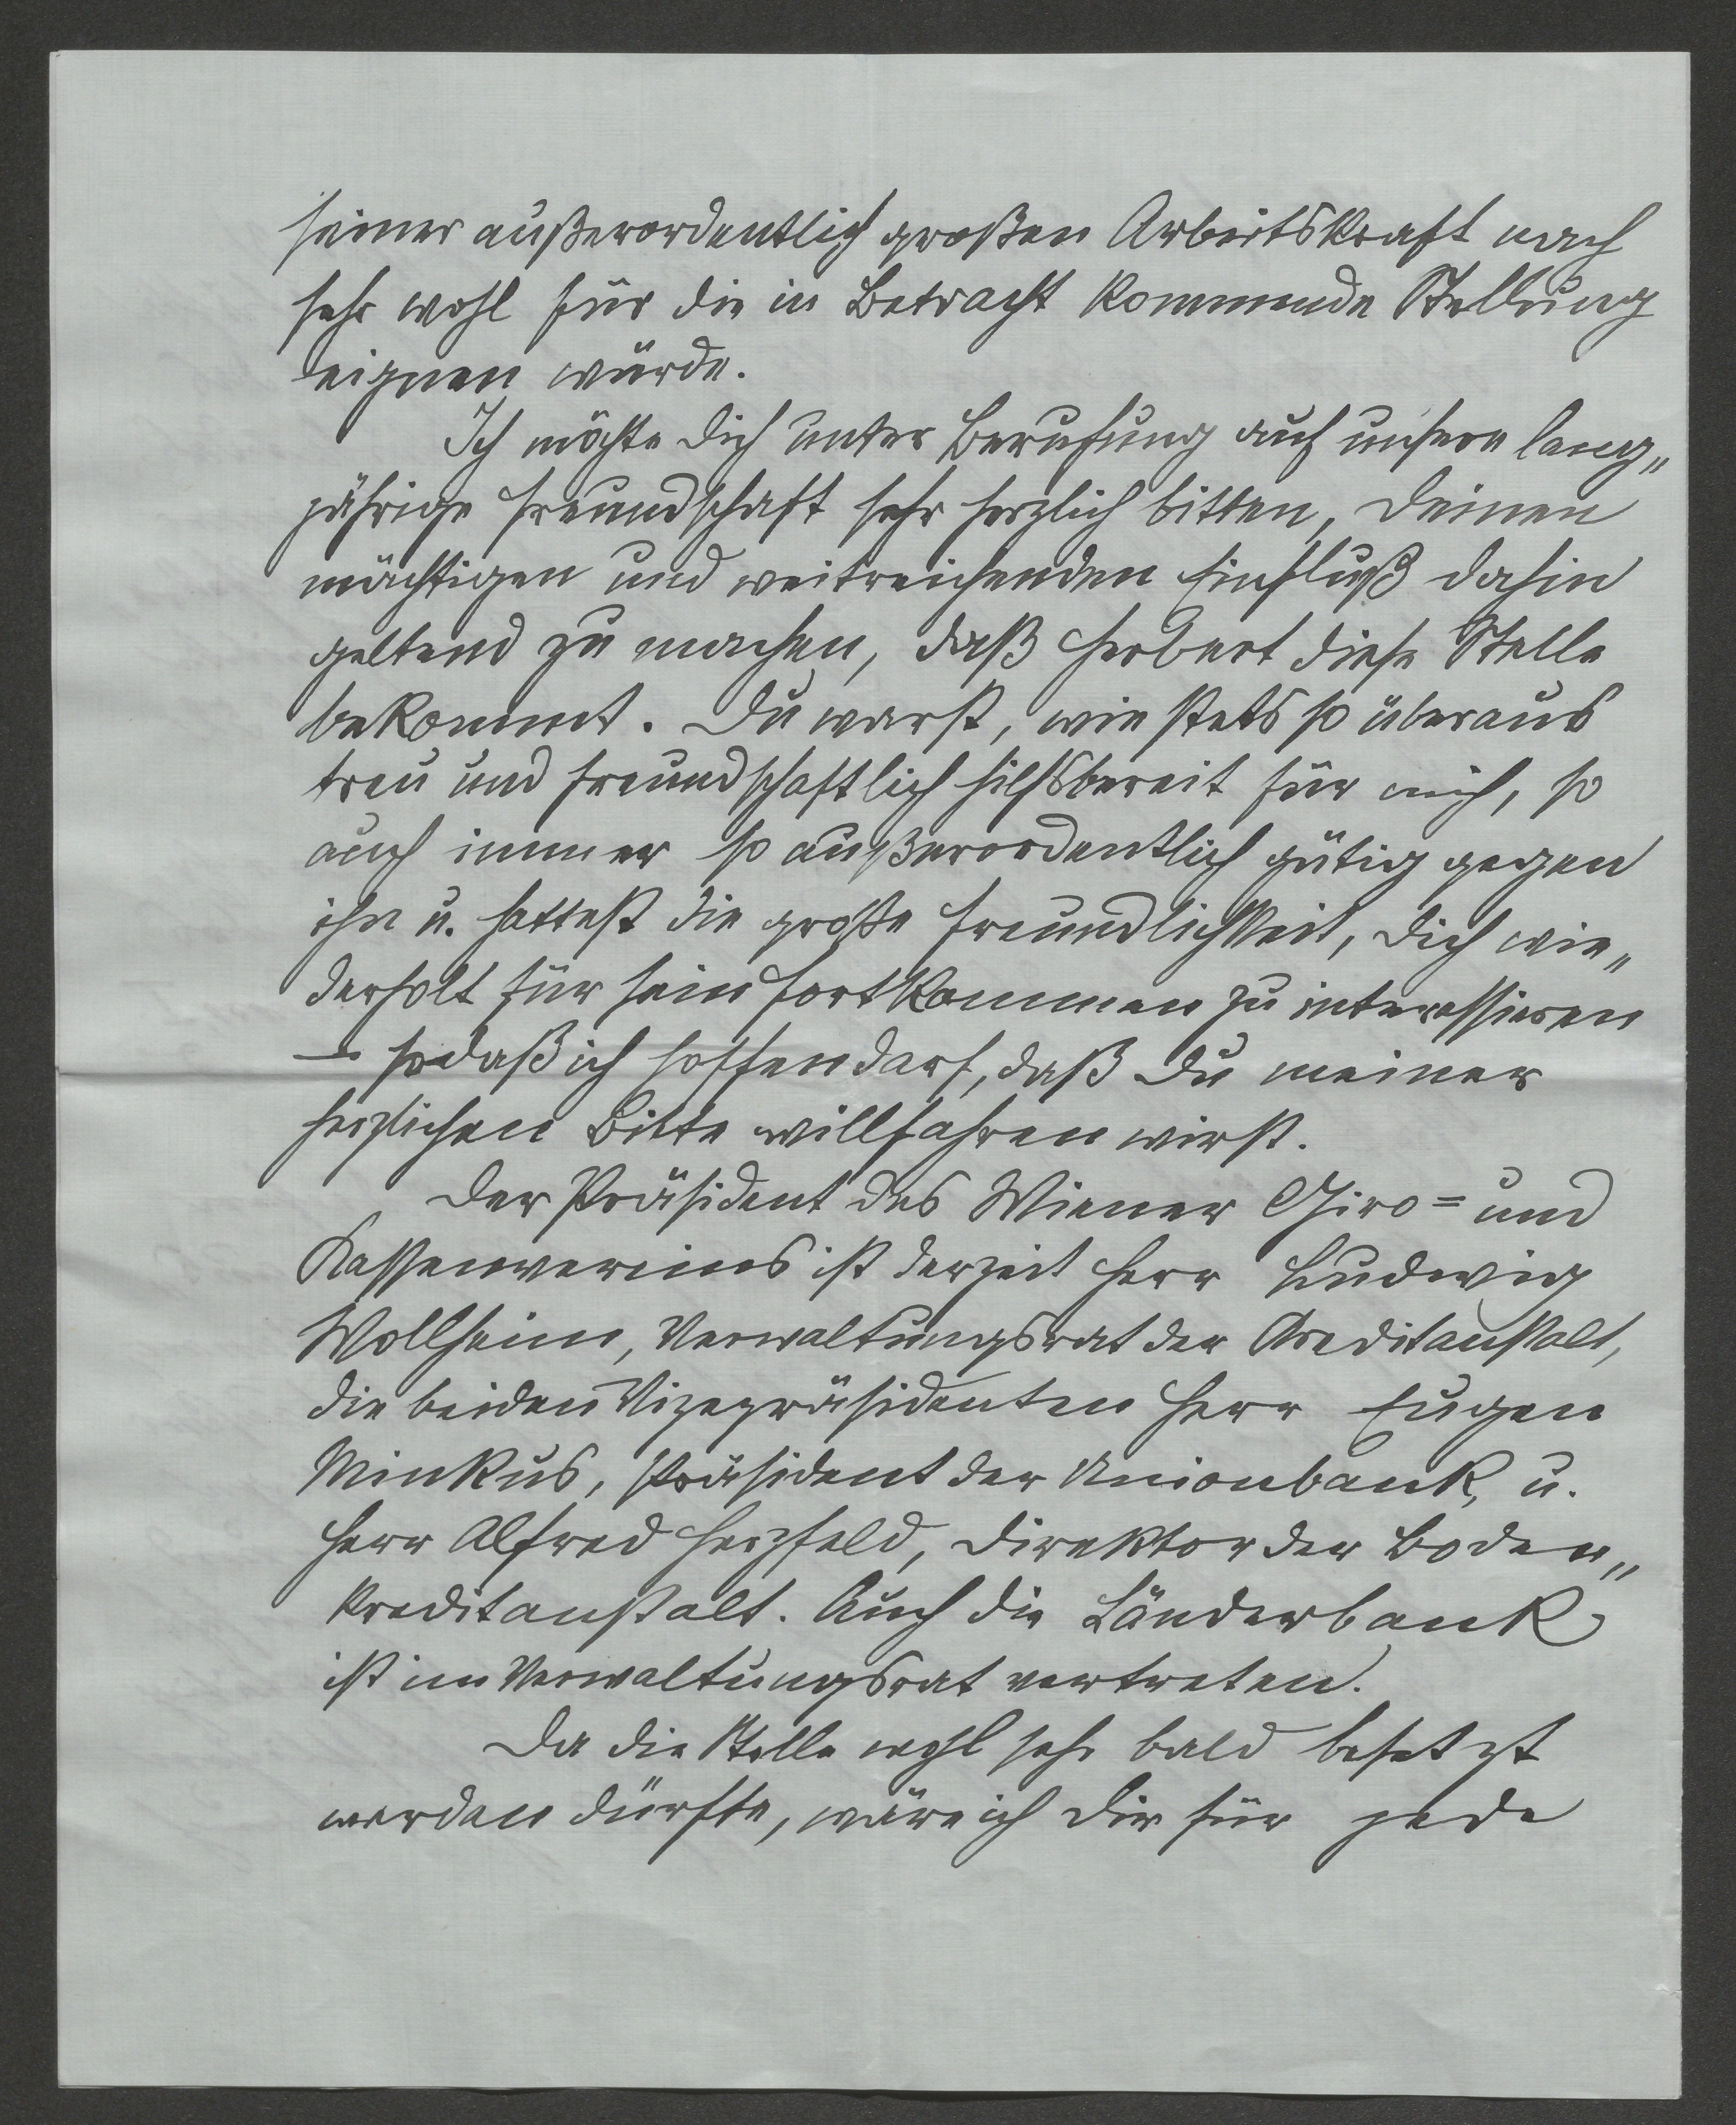 seiner außerordentlich großen Arbeitskraft nach
sehr wohl für die in Betracht kommende Stellung
eignen würde.
Ich möchte Dich unter Berufung auf unsere lang„
jährige Freundschaft sehr herzlich bitten, Deinen
mächtigen und weitreichenden Einfluß dahin
geltend zu machen, daß Herbert diese Stelle
bekommt. Du warst, wie stets so überaus
treu und freundschaftlich hilfsbereit für mich, so
auch immer so außerordentlich gütig gegen
ihn u. hattest die große Freundlichkeit, Dich wie„
derholt für sein Fortkommen zu interessieren
– sodaß ich hoffen darf, daß Du meiner
herzlichen Bitte willfahren wirst.
Der Präsident des Wiener Giro= und
Kassenvereins ist derzeit Herr Ludwig
Wollheim, Verwaltungsrat der Creditanstalt,
die beiden Vizepräsidenten Herr Eugen
Minkus, Präsident der Unionbank, u.
Herr Alfred Herzfeld, Direktor der Boden„
kreditanstalt. Auch die Länderbank
ist im Verwaltungsrat vertreten.
Da die Stelle wohl sehr bald besetzt
werden dürfte, wäre ich Dir für jede